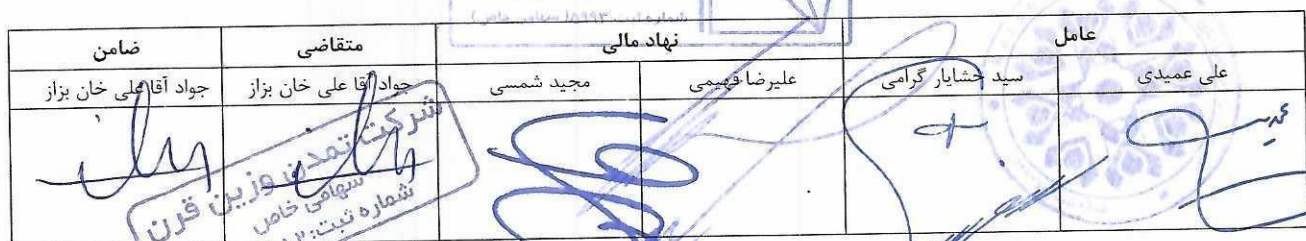 شماره ثبت: ۱۵۹۹۳ (سهامی خاص)
عامل نهاد مالی متقاضی ضامن
علی عمیدی سید خشایار گرامی علیرضا فهیمی مجید شمسی جواد آقا علی خان بزاز جواد آقا علی خان بزاز
شرکت تمدن وزین قرن
سهامی خاص
شماره ثبت: